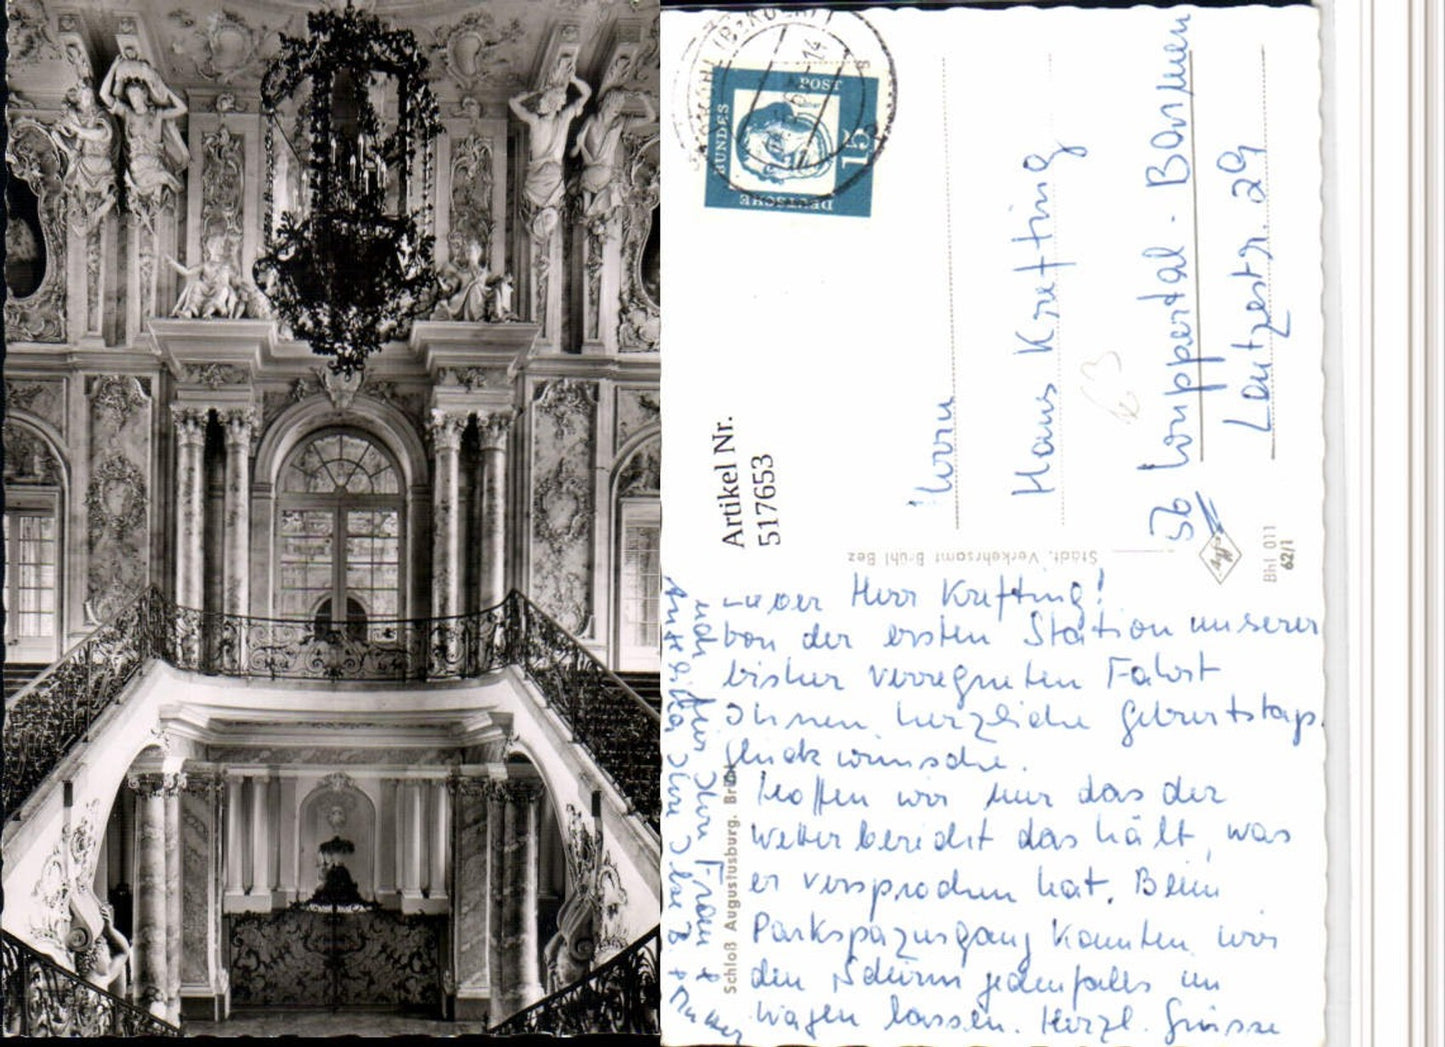 DEUTSCHE
BUNDES
POST
15
Artikel Nr.
517653
Herrn
Hans Krefting
56 Wuppertal-Barmen
29
Städt. Verkehrsamt Brühl Bez
Bhl 011
62/1
Schloß Augustusburg. Brühl
Lieber Herr Krefting!
Von der ersten Station unserer
bisher verregneten Fahrt
Ihnen herzliche Geburtstags
glückwünsche.
Hoffen wir nur das der
Wetterbericht das hält, was
er versprochen hat. Beim
Parkspaziergang konnten wir
den Schirm jedenfalls im
Wagen lassen. Herzl. Grüsse
auch für Ihre Frau
Ihre